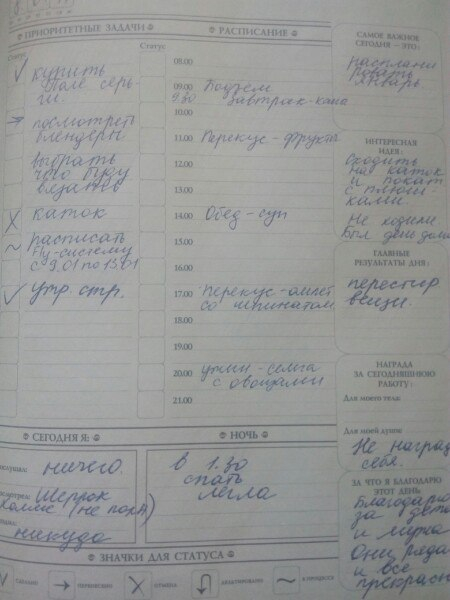 ПРИОРИТЕТНЫЕ ЗАДАЧИ
Статус
купить
Поле серь-
ги.
посмотреть
блендеры
выбрать
что буду
вязать
каток
расписать
Fly-систему
с 9.01 по 15.01
утр. стр.
Статус
РАСПИСАНИЕ
08.00
09.00 Подъем
9.30 завтрак-каша
10.00
11.00 Перекус-фрукты
12.00
13.00
14.00 Обед-суп
15.00
16.00
17.00 Перекус-омлет
18.00 со шпинатом
19.00
20.00 ужин-семга
с овощами
21.00
САМОЕ ВАЖНОЕ
СЕГОДНЯ - ЭТО:
распланировать
январь
ИНТЕРЕСНАЯ
ИДЕЯ:
Сходить
на каток
и
с
ками.
Не ходили
Был день дома
ГЛАВНЫЕ
РЕЗУЛЬТАТЫ ДНЯ:
перестир
вещи.
НАГРАДА
ЗА СЕГОДНЯШНЮЮ
РАБОТУ:
Для моего тела:
Для моей души:
Не наград
себя.
ЗА ЧТО Я БЛАГОДАРЮ
ЭТОТ ДЕНЬ
Благодарю
за дет
и мужа
Они ряд
и все
прекрасн
СЕГОДНЯ Я:
ничего.
Шерлок
Холмс (не
никуда
НОЧЬ
в 1.30
спать
легла
ЗНАЧКИ ДЛЯ СТАТУСА
СДЕЛАНО
ПЕРЕНЕСЕНО
ОТМЕНА
ДЕЛЕГИРОВАНО
В ПРОЦЕССЕ